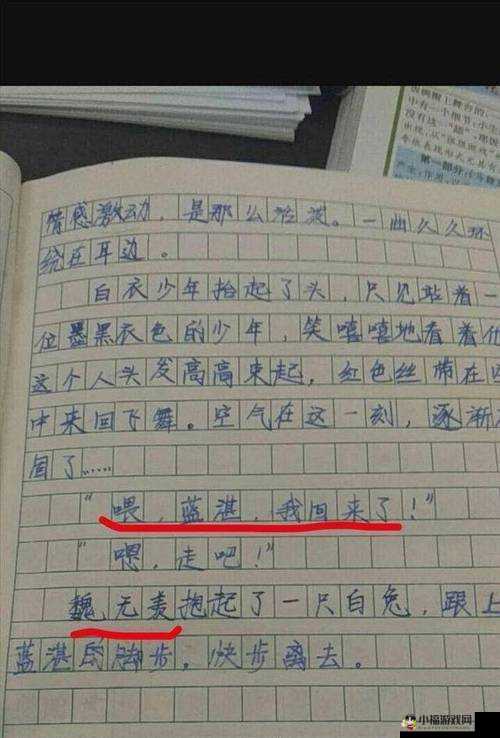 情感激动，是那么活泼。一曲久久环
绕在耳边。
白衣少年抬起了头，只见站着一
位墨黑衣色的少年，笑嘻嘻地看着他
这个人头发高高束起，红色丝带在
中来回飞舞。空气在这一刻，逐渐
间了……
“喂，蓝湛，我回来了！”
“嗯，走吧！”
魏无羡抱起了一只白兔，跟上
蓝湛的脚步，快步离去。
中有一个细节：
没有这
第一部分
小福游戏网